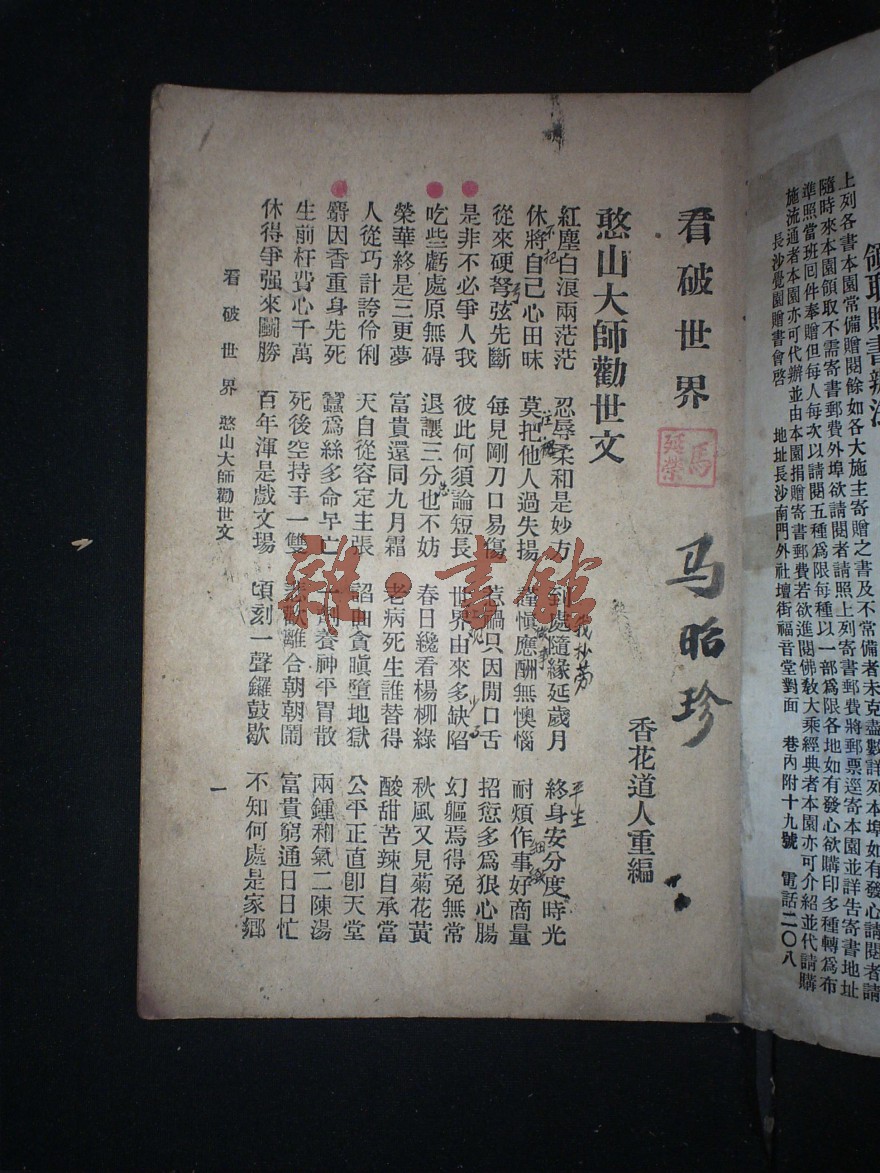 領取贈書辦法
上列各書本園常備贈閱餘如各大施主寄贈之書及不常備者未克盡數詳列本埠如有發心請閱者請
隨時來本園領取不需寄書郵費外埠欲請閱者請照上列寄書郵費將郵票逕寄本園並詳告寄書地址
準照當班回件奉贈但每人每次以請閱五種爲限每種以一部爲限各地如有發心欲購印多種轉爲布
施流通者本園亦可代辦並由本園捐贈寄書郵費若欲進閱佛敎大乘經典者本園亦可介紹並代請購
長沙覺園贈書會啓　地址長沙南門外社壇街福音堂對面　巷內附十九號　電話二〇八
看破世界
馬延榮
马昭珍
憨山大師勸世文
香花道人重編
紅塵白浪兩茫茫　忍辱柔和是妙方　到處隨緣延歲月　終身安分度時光
休將自己心田昧　莫把他人過失揚　謹愼應酬無懊惱　耐煩作事好商量
從來硬弩弦先斷　每見剛刀口易傷　惹禍只因閒口舌　招愆多爲狠心腸
是非不必爭人我　彼此何須論短長　世界由來多缺陷　幻軀焉得免無常
吃些虧處原無碍　退讓三分也不妨　春日纔看楊柳綠　秋風又見菊花黃
榮華終是三更夢　富貴還同九月霜　老病死生誰替得　酸甜苦辣自承當
人從巧計誇伶俐　天自從容定主張　諂曲貪瞋墮地獄　公平正直卽天堂
麝因香重身先死　蠶爲絲多命早亡　一劑養神平胃散　兩鍾和氣二陳湯
生前枉費心千萬　死後空持手一雙　悲歡離合朝朝鬧　富貴窮通日日忙
休得爭强來鬭勝　百年渾是戲文場　頃刻一聲鑼鼓歇　不知何處是家鄉
看破世界　憨山大師勸世文　一
平生
雜·書館